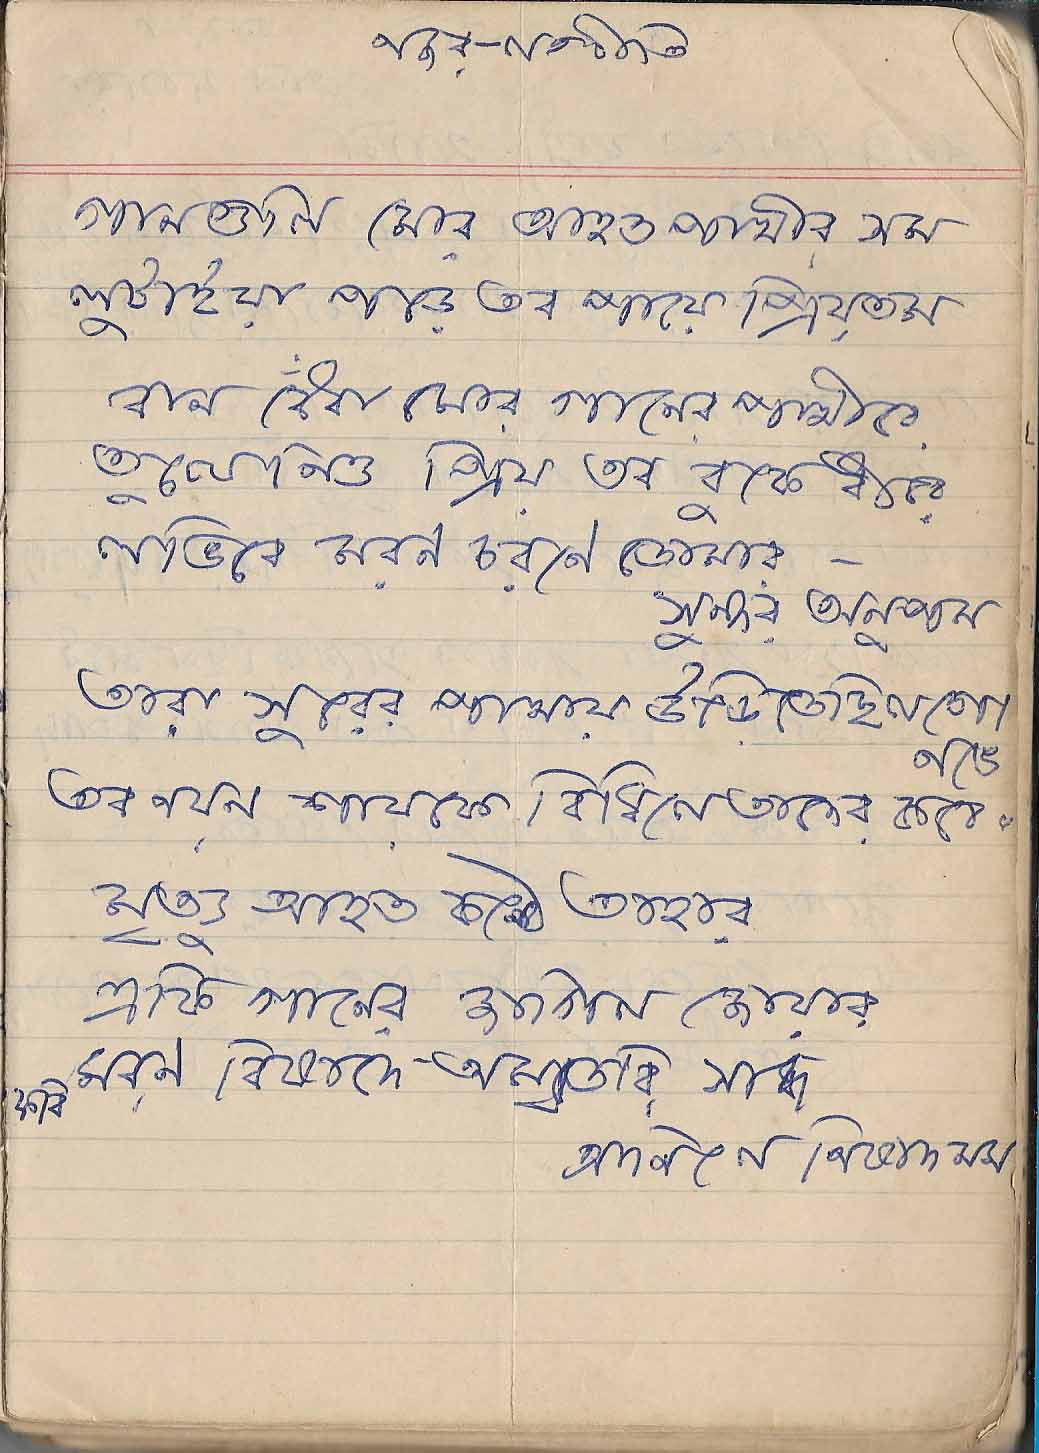 নজরুল-গীতি
গানগুলি মোর আহত পাখীর সম
লুটাইয়া পড়ে তব পায়ে প্রিয়তম
বান বেঁধা মোর গানের পাখীরে
তুলে নিও প্রিয় তব বুকে ধীরে
লভিবে মরন চরণে তোমার —
সুন্দর অনুপম
তারা সুরের পাখায় উড়িতেছিল গো
নভে
তব নয়ন শায়কে বিঁধিলে তাদের কবে।
মৃত্যু আহত কন্ঠে তাহার
একি গানের জাগিল জোয়ার
মরন বিষাদে অমৃতের স্বাদ
আনিলে নিষাদ মম